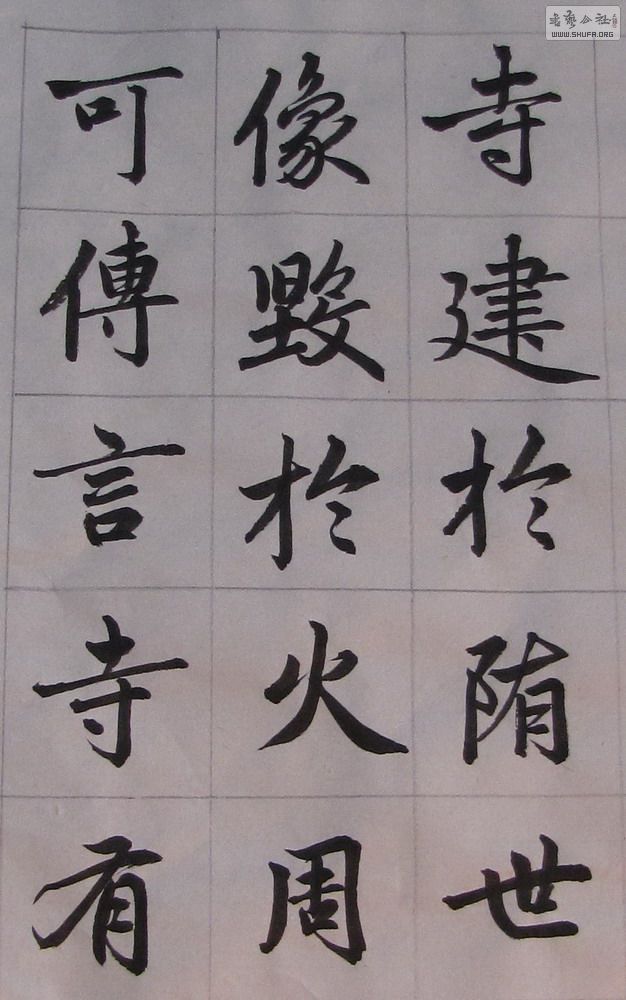 寺建於陏世
像毀於火周
可傳言寺有
书艺公社
WWW.SHUFA.ORG